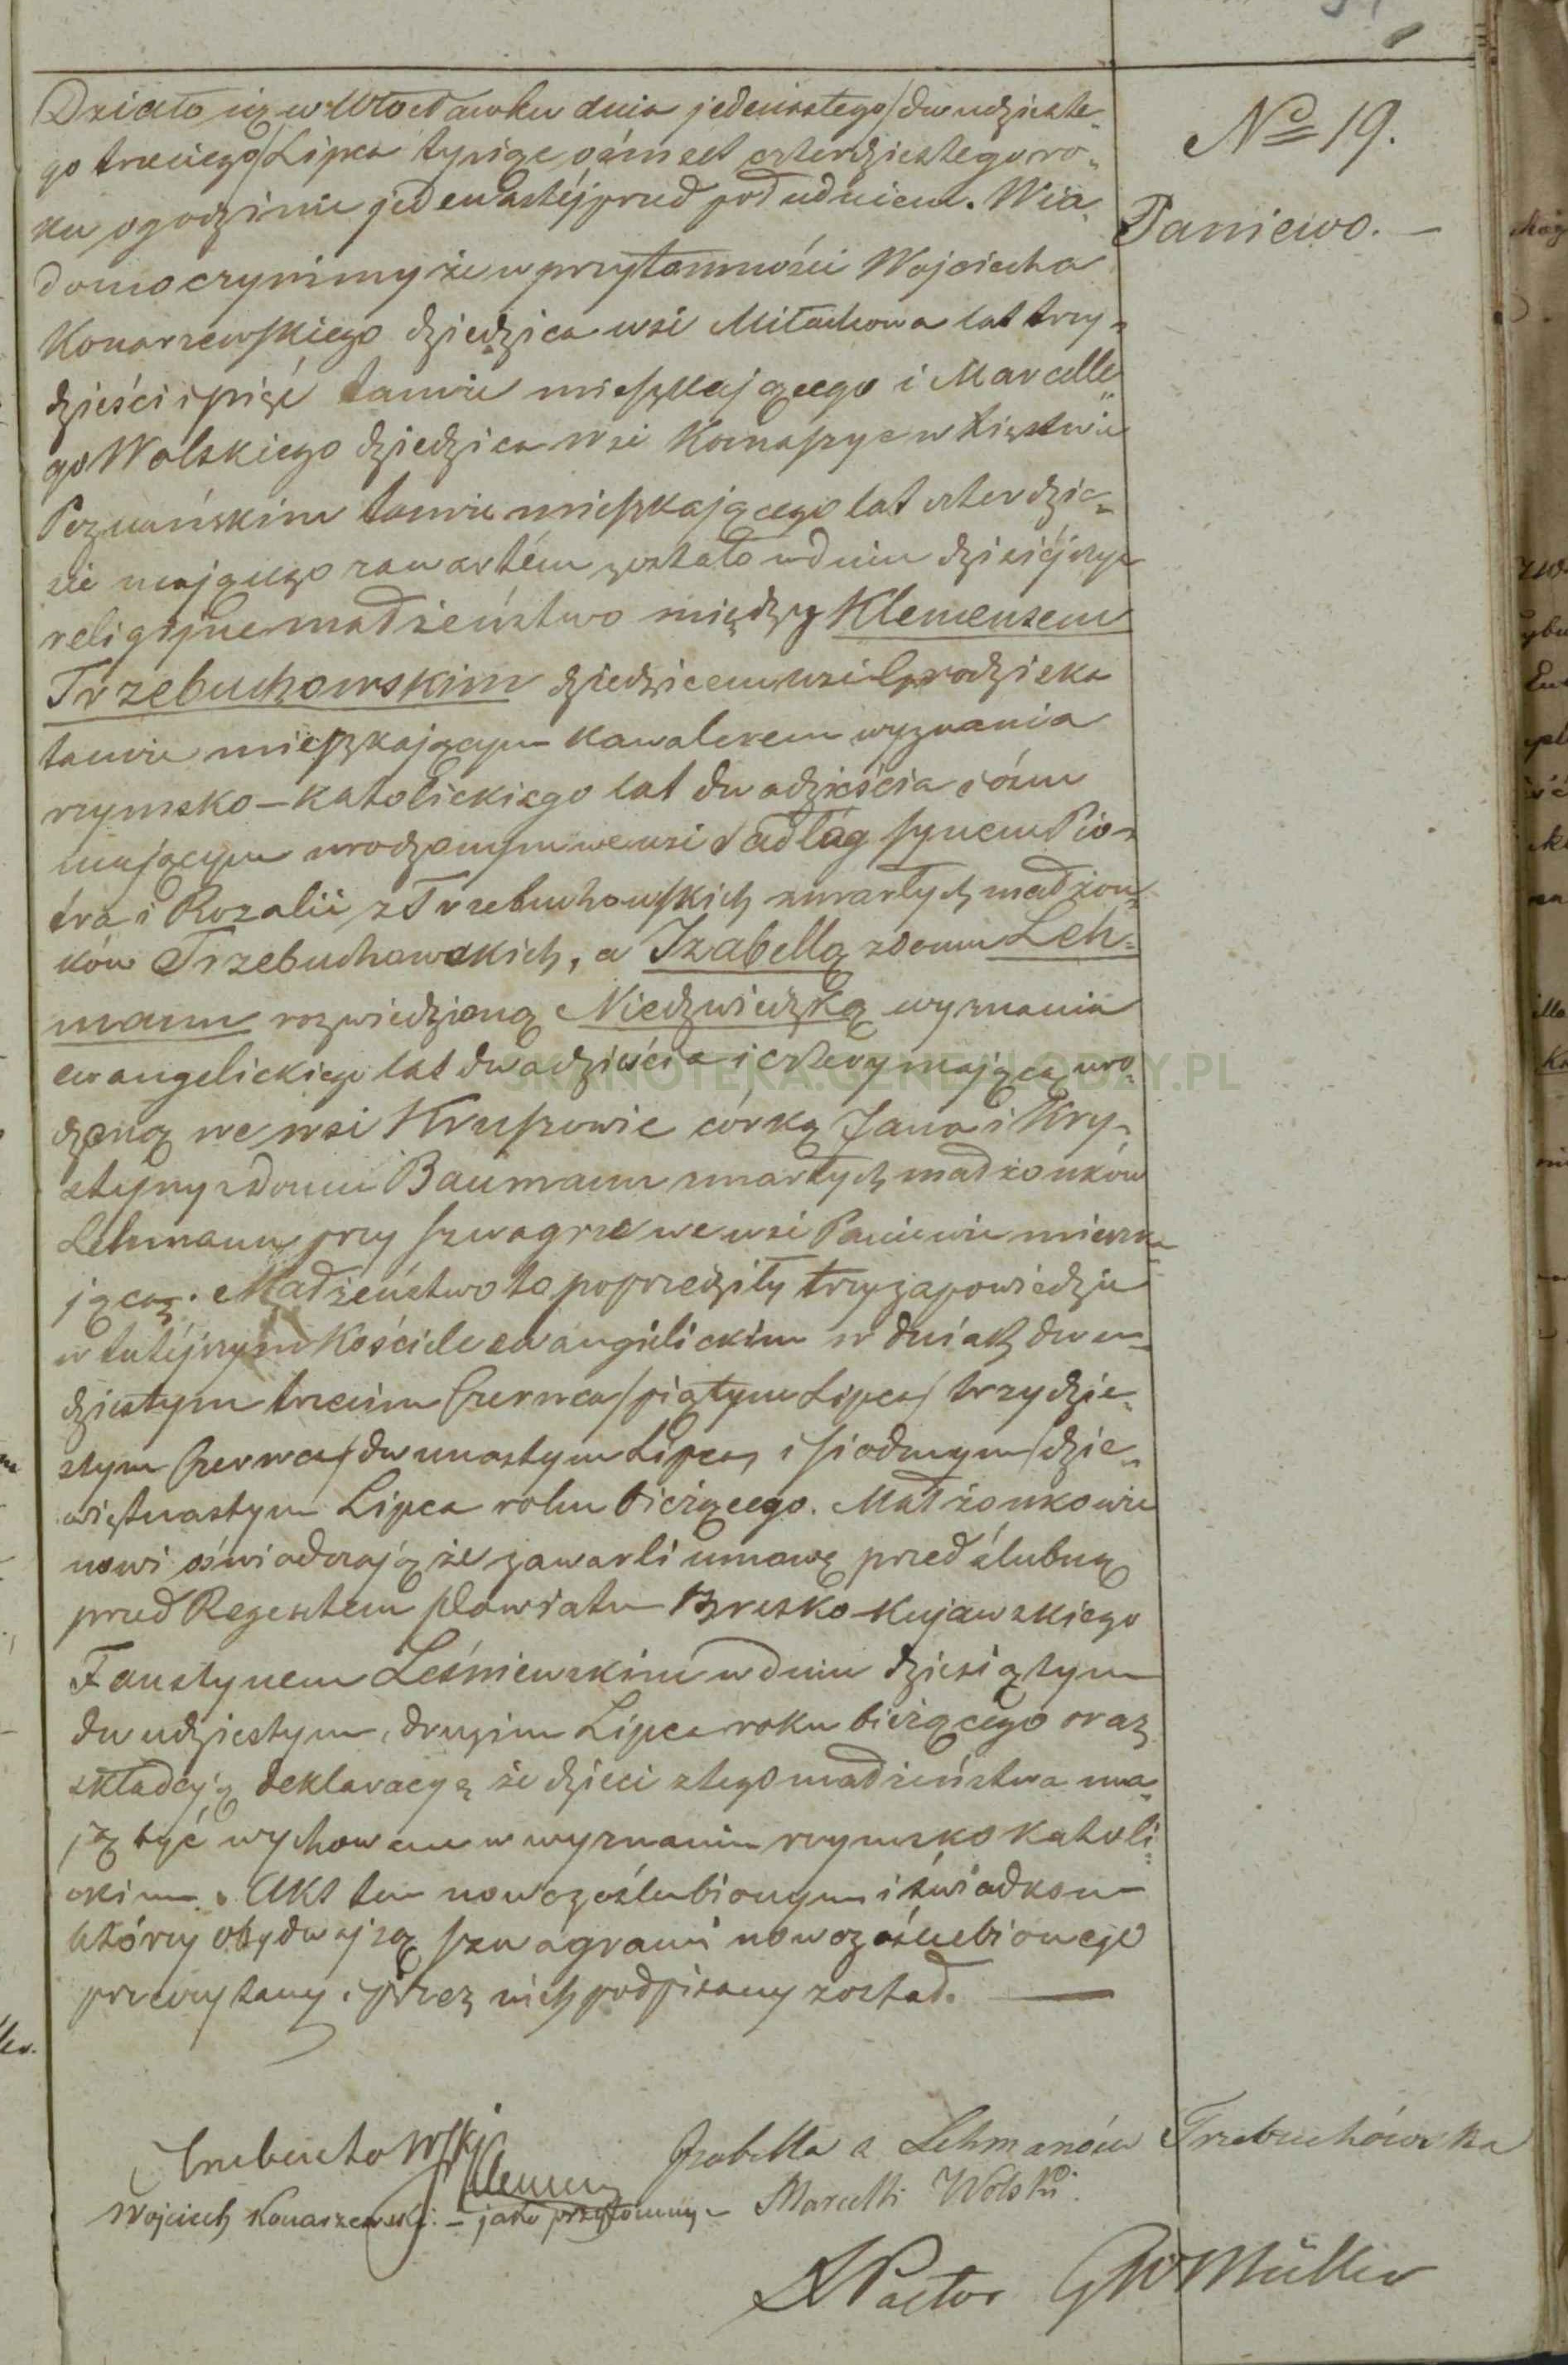 Działo się w Włocławku dnia jedenastego/dwudzieste-
go trzeciego/Lipca tysiąc ośmset czterdziestego ro-
ku o godzinie jedenastéj przed południem. Wia-
domo czynimy że w przytomności Wojciecha
Konarzewskiego dziedzica wsi Milachowa lat trzy-
dzieści i pięć tamże mieszkającego i Marcelle-
go Wolskiego dziedzica wsi w Xięstwie
Poznańskim tamże mieszkającego lat czterdzie-
ści mającego zawartém zostało w dniu dzisiéjszym
religijne małżeństwo między Klemensem
Trzebuchowskim dziedzicem wsi Grodziska
tamże mieszkającym kawalerem wyznania
rzymsko-katolickiego lat dwadzieścia i ośm
mającym urodzonym we wsi Sadług synem Pio-
tra i Rozalii z Trzebuchowskich zmarłych małżon-
ków Trzebuchowskich, a Izabellą z domu Leh-
mann rozwiedzioną Niedzwiedzką wyznania
ewangelickiego lat dwadzieścia i cztery mającą uro-
dzoną we wsi Kruszowie córką Jana i Kry-
styny z domu Baumann zmarłych małżonków
Lehmann przy szwagrze we wsi Paniewie mieszka-
jącą. Małżeństwo to poprzedziły trzy zapowiedzie
w tutéjszym Kościele ewangielickim w dniach dwu-
dziestym trzecim Czerwca/piątym Lipca/ trzydzie-
stym Czerwca/dwunastym Lipca, i siodmym/dzie-
więtnastym Lipca roku bieżącego. Małżonkowie
nowi oświadczają że zawarli umowę przedślubną
przed Regentem Powiatu Brzesko-Kujawskiego
Faustynem Leśniewskim w dniu dziesiątym
dwudziestym drugim Lipca roku bieżącego oraz
składają deklaracyą że dzieci z tego małżeństwa ma-
ją być wychowane w wyznaniu rzymsko katoli-
ckim. Akt ten nowozaślubionym i świadkom
którzy obydwaj są szwagrami nowozaślubionej
przeczytany i przez nich podpisany został.
No 19.
Paniewo.
Trzebuchowski Klemens
Izabella z Lehmanów Trzebuchówska
Wojciech Konarzewski - jako przytomny - Marcelli Wolski.
Pastor GW Müller
SKANOTEKA.GENEALODZY.PL